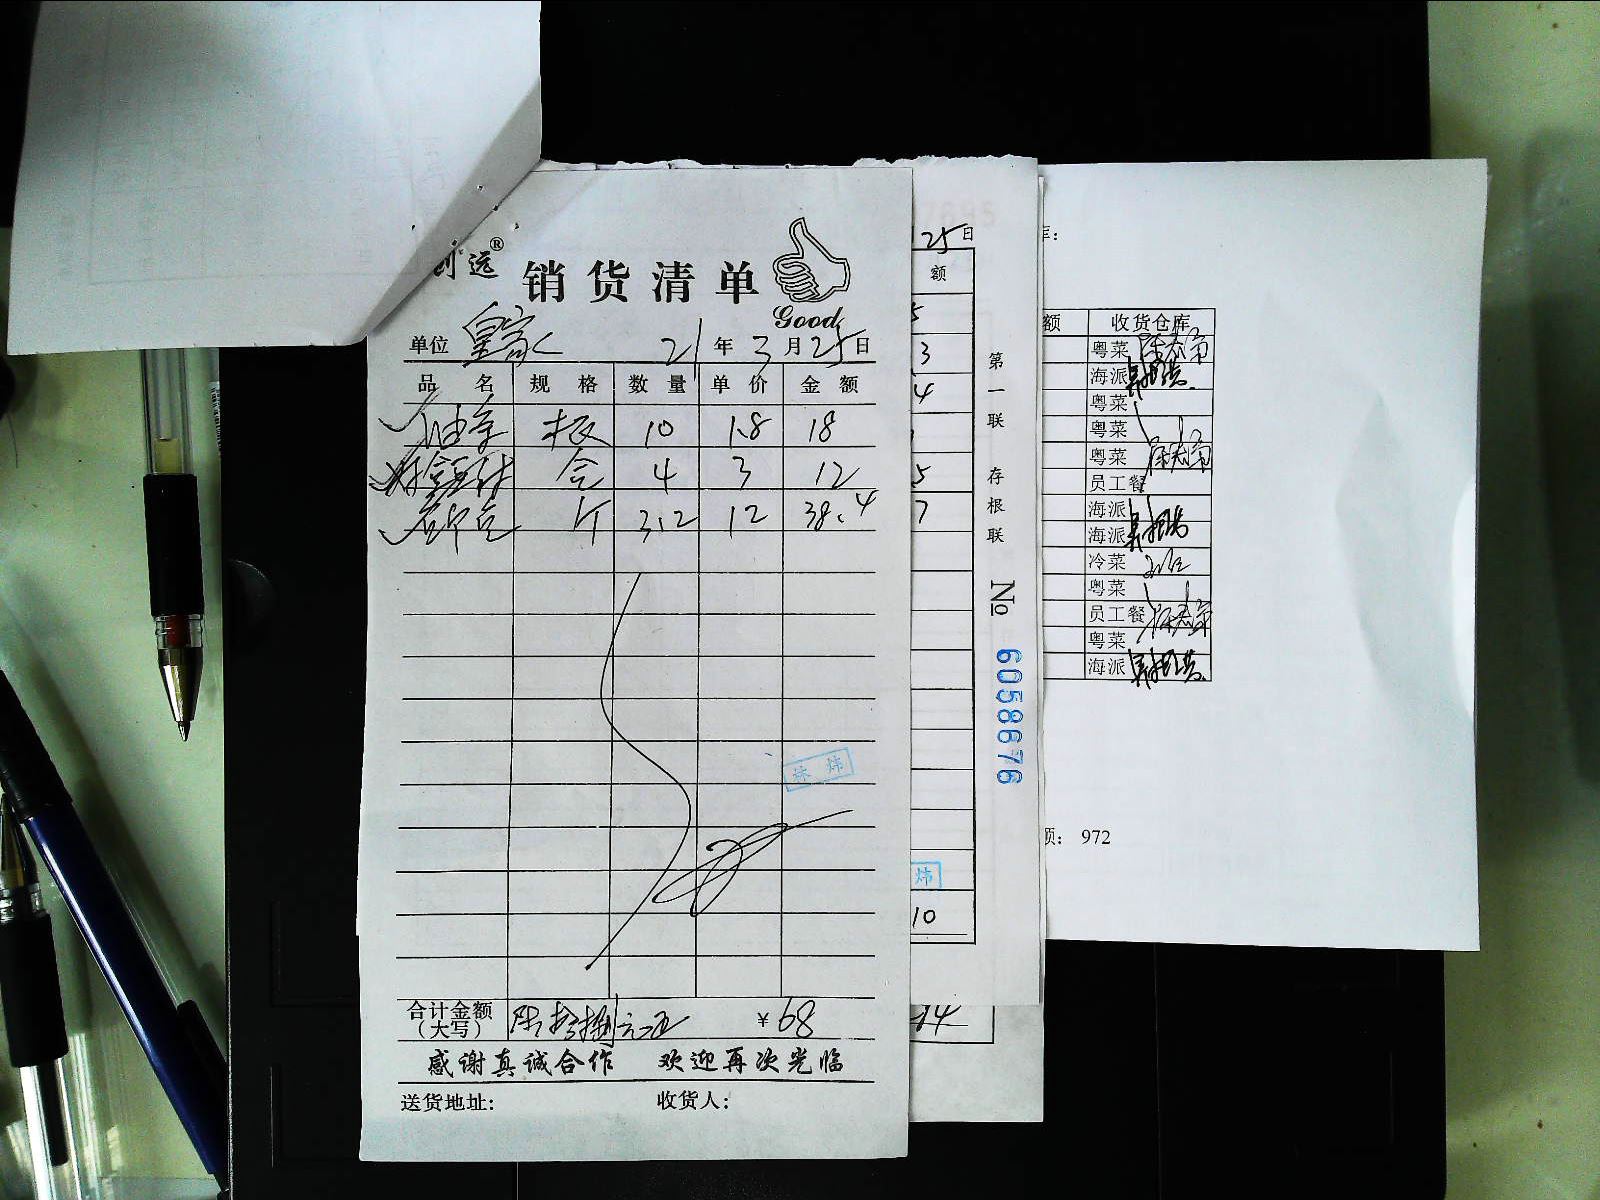 远®
销货清单
Good
单位 皇家 21年3月25日
品名 规格 数量 单价 金额
油 板 10 1.8 18
合 4 3 12
斤 3.2 12 38.4
林炜
合计金额(大写) 陆拾捌元正 ¥68
感谢真诚合作 欢迎再次光临
送货地址: 收货人:
25日
额
5
3
4
5
7
炜
10
14
第一联 存根联 № 6058676
库:
额 收货仓库
粤菜
海派
粤菜
粤菜
粤菜
员工餐
海派
海派
冷菜
粤菜
员工餐
粤菜
海派
额: 972